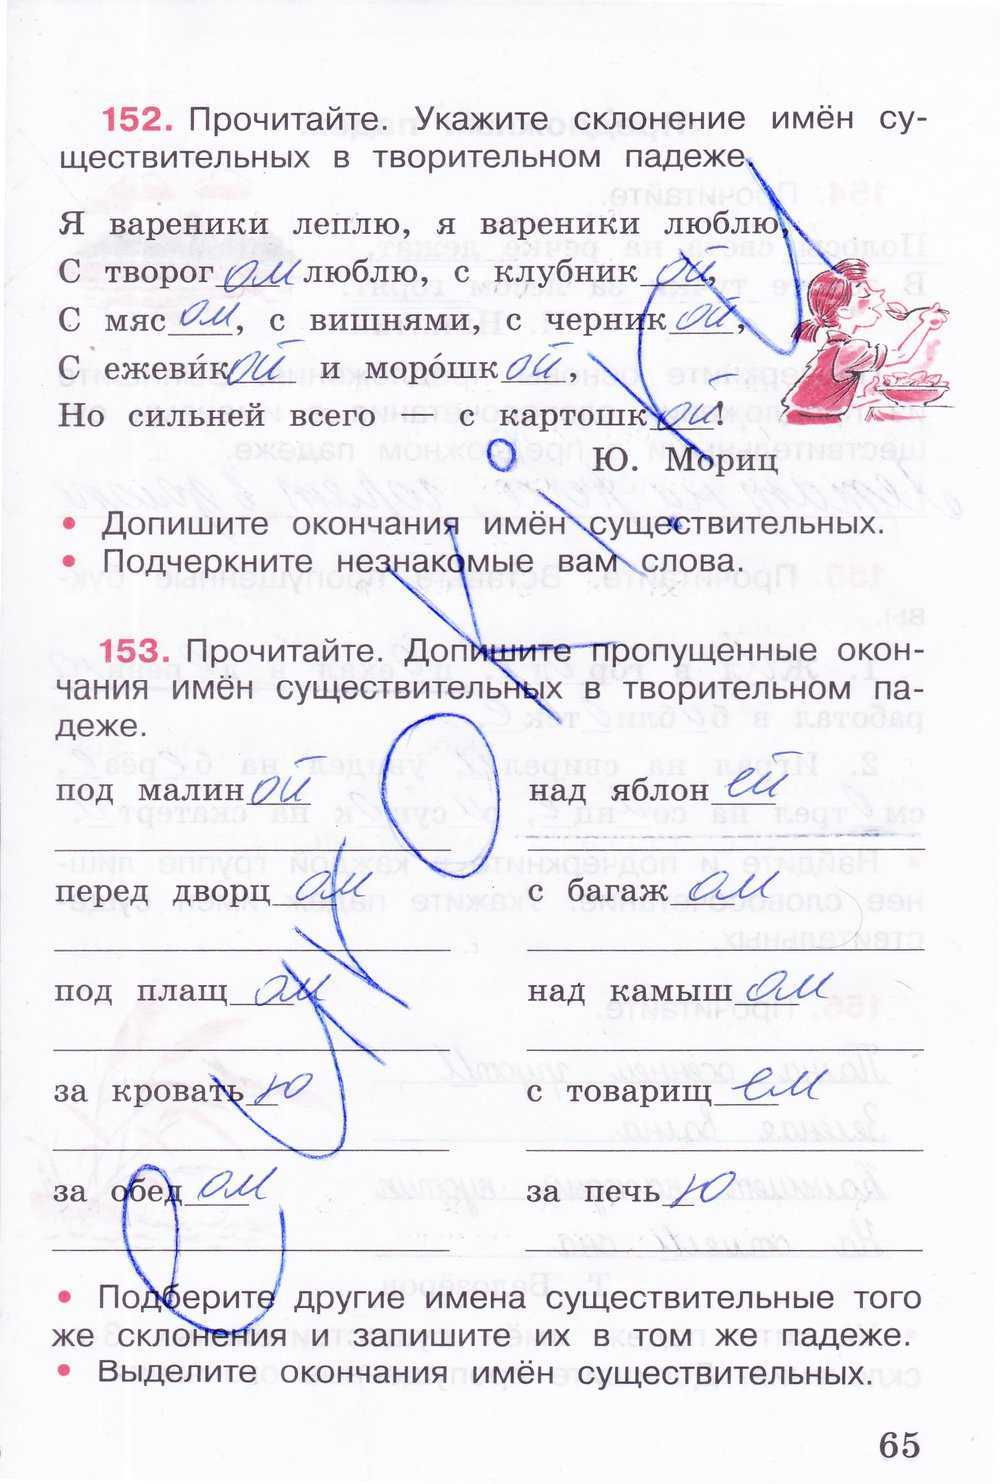 152. Прочитайте. Укажите склонение имён су-
ществительных в творительном падеже.
Я вареники леплю, я вареники люблю,
С творогом люблю, с клубникой,
С мясом, с вишнями, с черникой,
С ежеви́кой и моро́шкой,
Но сильней всего — с картошкой!
Ю. Мориц
• Допишите окончания имён существительных.
• Подчеркните незнакомые вам слова.
153. Прочитайте. Допишите пропущенные окон-
чания имён существительных в творительном па-
деже.
под малиной над яблоней
перед дворцом с багажом
под плащом над камышом
за кроватью с товарищем
за обедом за печью
• Подберите другие имена существительные того
же склонения и запишите их в том же падеже.
• Выделите окончания имён существительных.
65